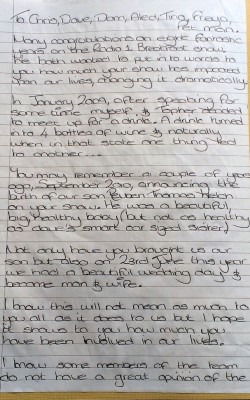 To Chris, Dave, Dom, Aled, Tina, Freya,
Many congratulations on eight fantastic
years on the Radio 1 Breakfast show.
We both wanted to put in to words to
you how much your show has impacted
upon our lives, changing it dramatically.
In January 2009, after speaking for
some time myself & decided
to meet up for a drink. A drink turned
in to 4 bottles of wine & naturally
when in that state one thing led
to another...
You may remember a couple of years
ago, September 2010, announcing the
birth of our son Thomas
on your show. He was a beautiful,
big, healthy baby (but not as healthy
as Dave's smart car sized sister)
Not only have you brought us our
son but also on 23rd June this year
we had a beautiful wedding day &
became man & wife.
I know this will not mean as much to
you all as it does to us but I hope
it shows to you how much you
have been involved in our lives.
I know some members of the team
do not have a great opinion of the